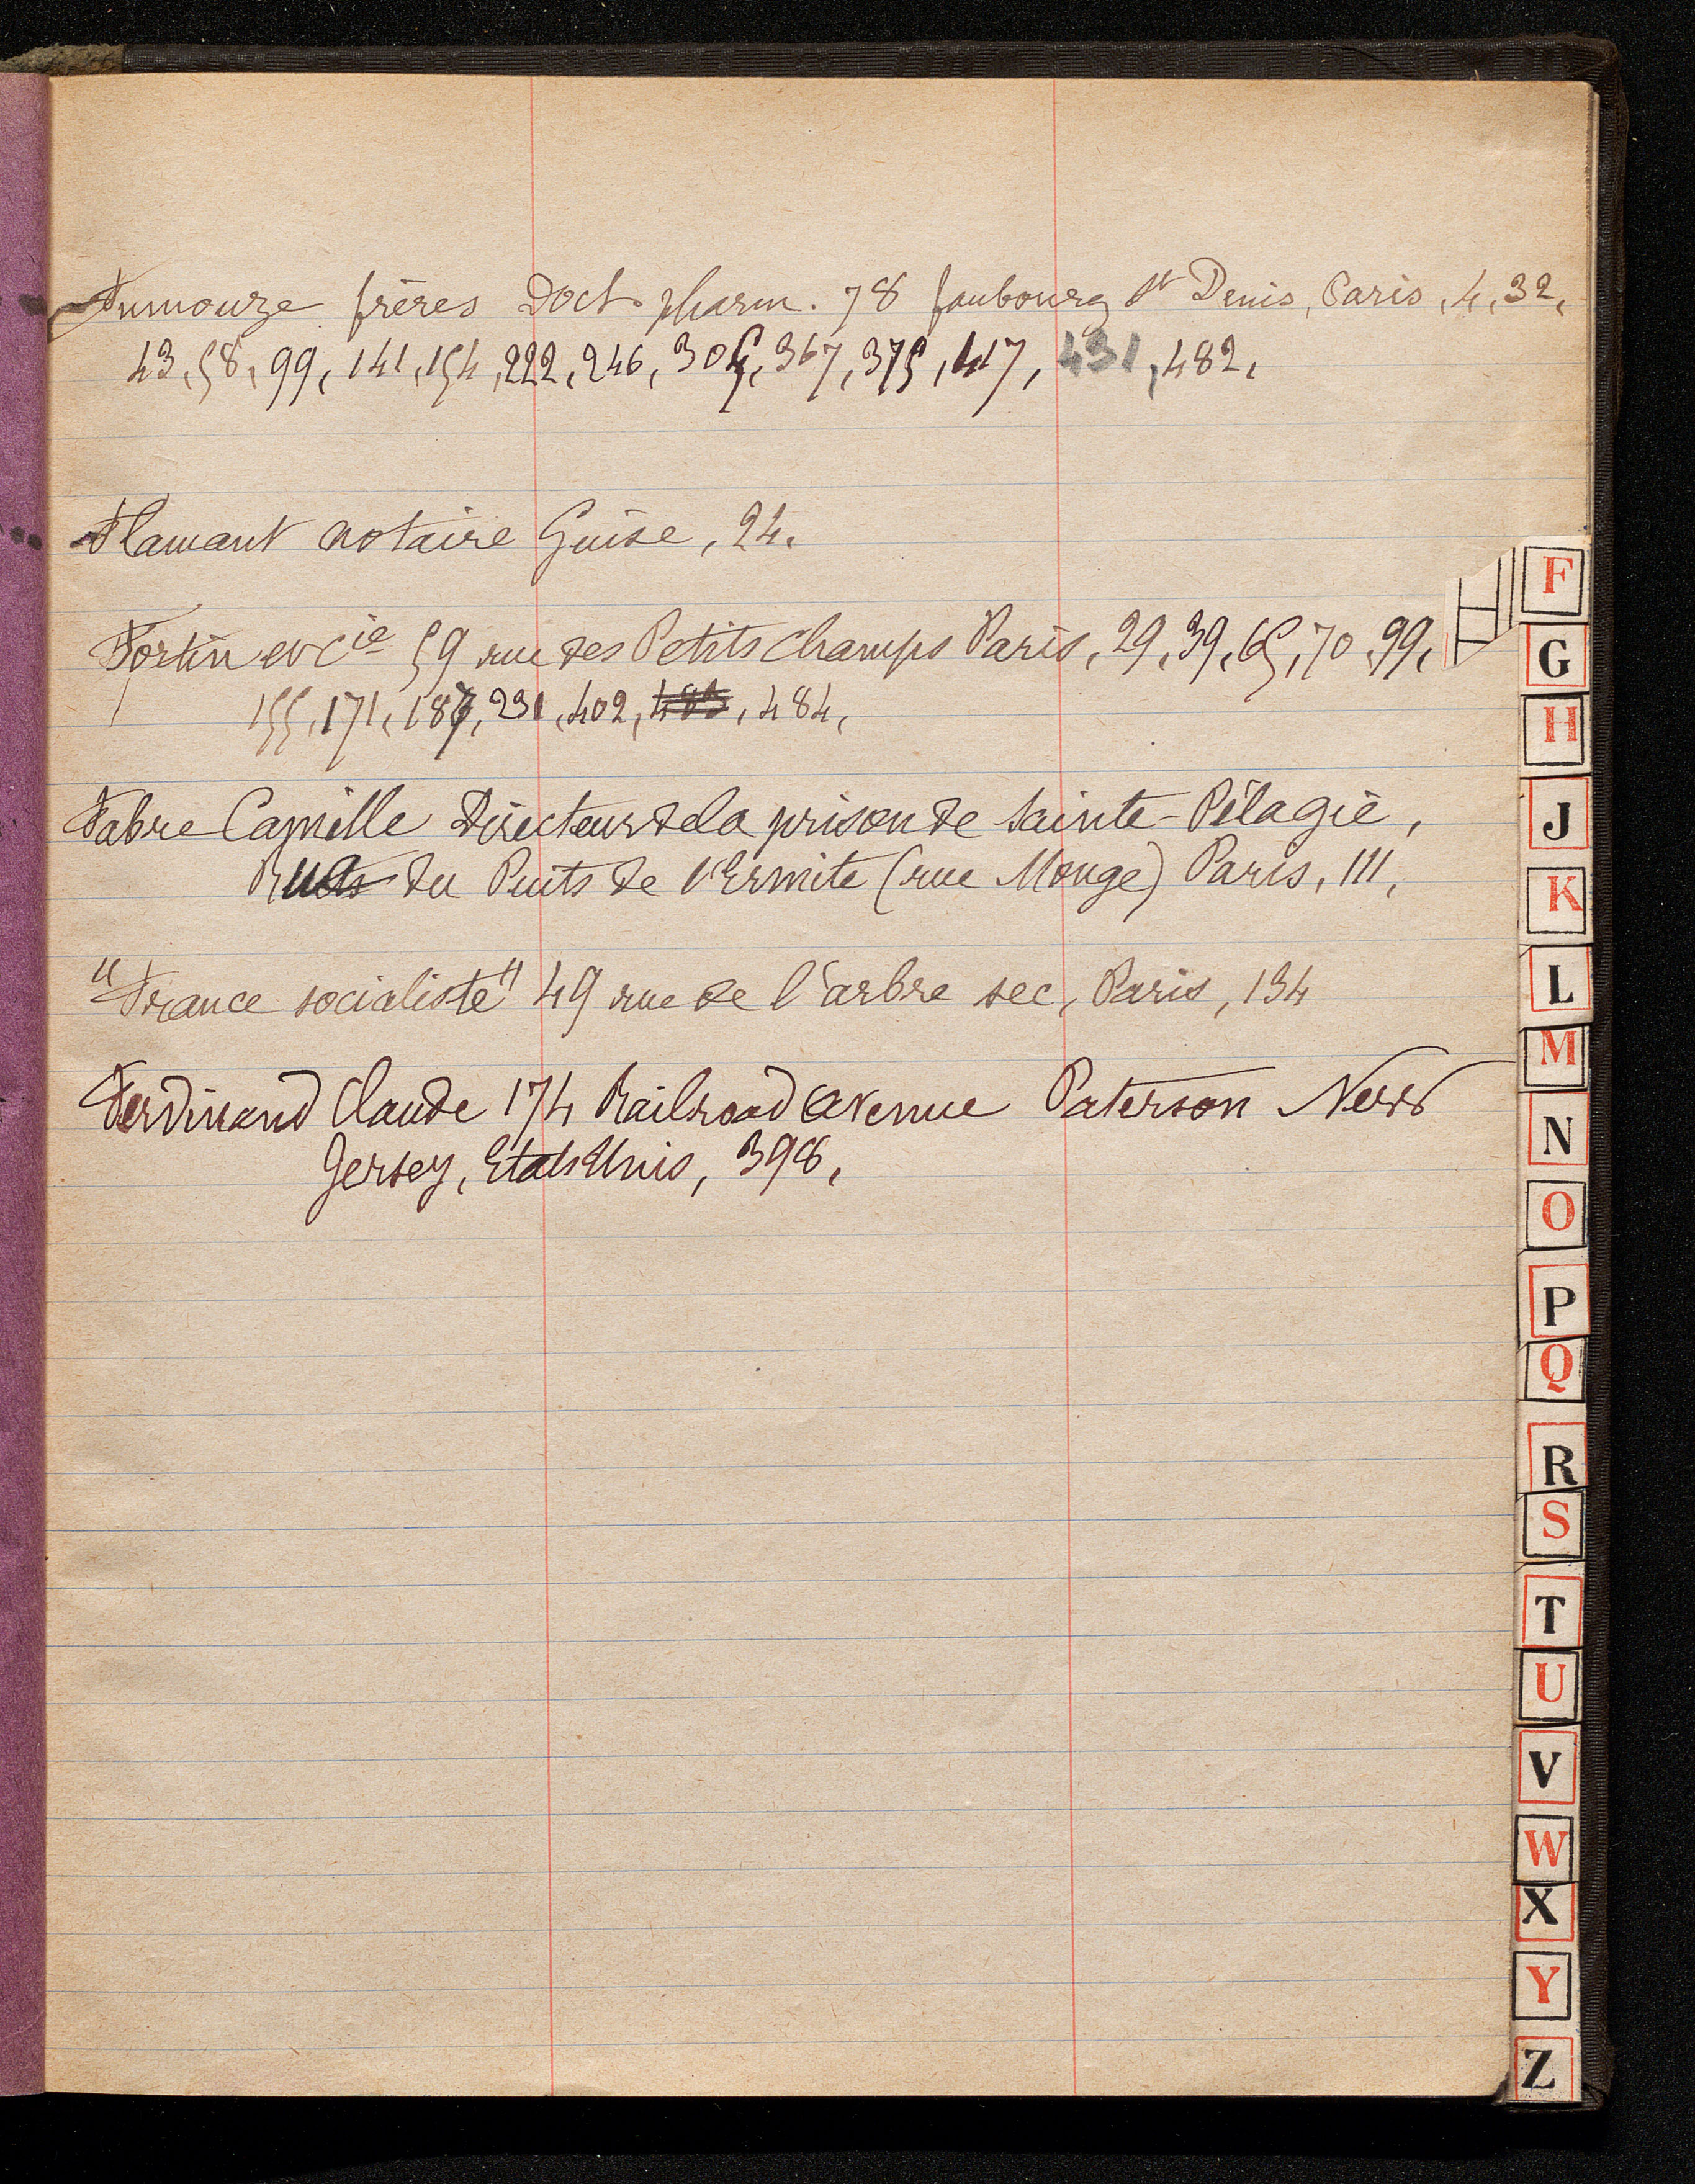 Fumouze frères Doct. pharm. 78 faubourg St Denis, Paris, 4, 32,
43, 58, 99, 141, 154, 222, 246, 305, 367, 375, 417, 431, 482,
Flamant notaire Guise, 24.
Fortin et Cie 59 rue des Petits champs Paris, 29, 39, 65, 70, 99,
155, 171, 187, 231, 402, 483, 484,
Fabre Camille Directeur de la prison de Sainte-Pélagie,
Rue du Puits de l'Ermite (rue Monge) Paris, 111,
"France socialiste" 49 rue de l'arbre sec, Paris, 134
Ferdinand Claude 174 Railroad avenue Paterson New
Gersey, Etats Unis, 398,
F
G
H
J
K
L
M
N
O
P
Q
R
S
T
U
V
W
X
Y
Z